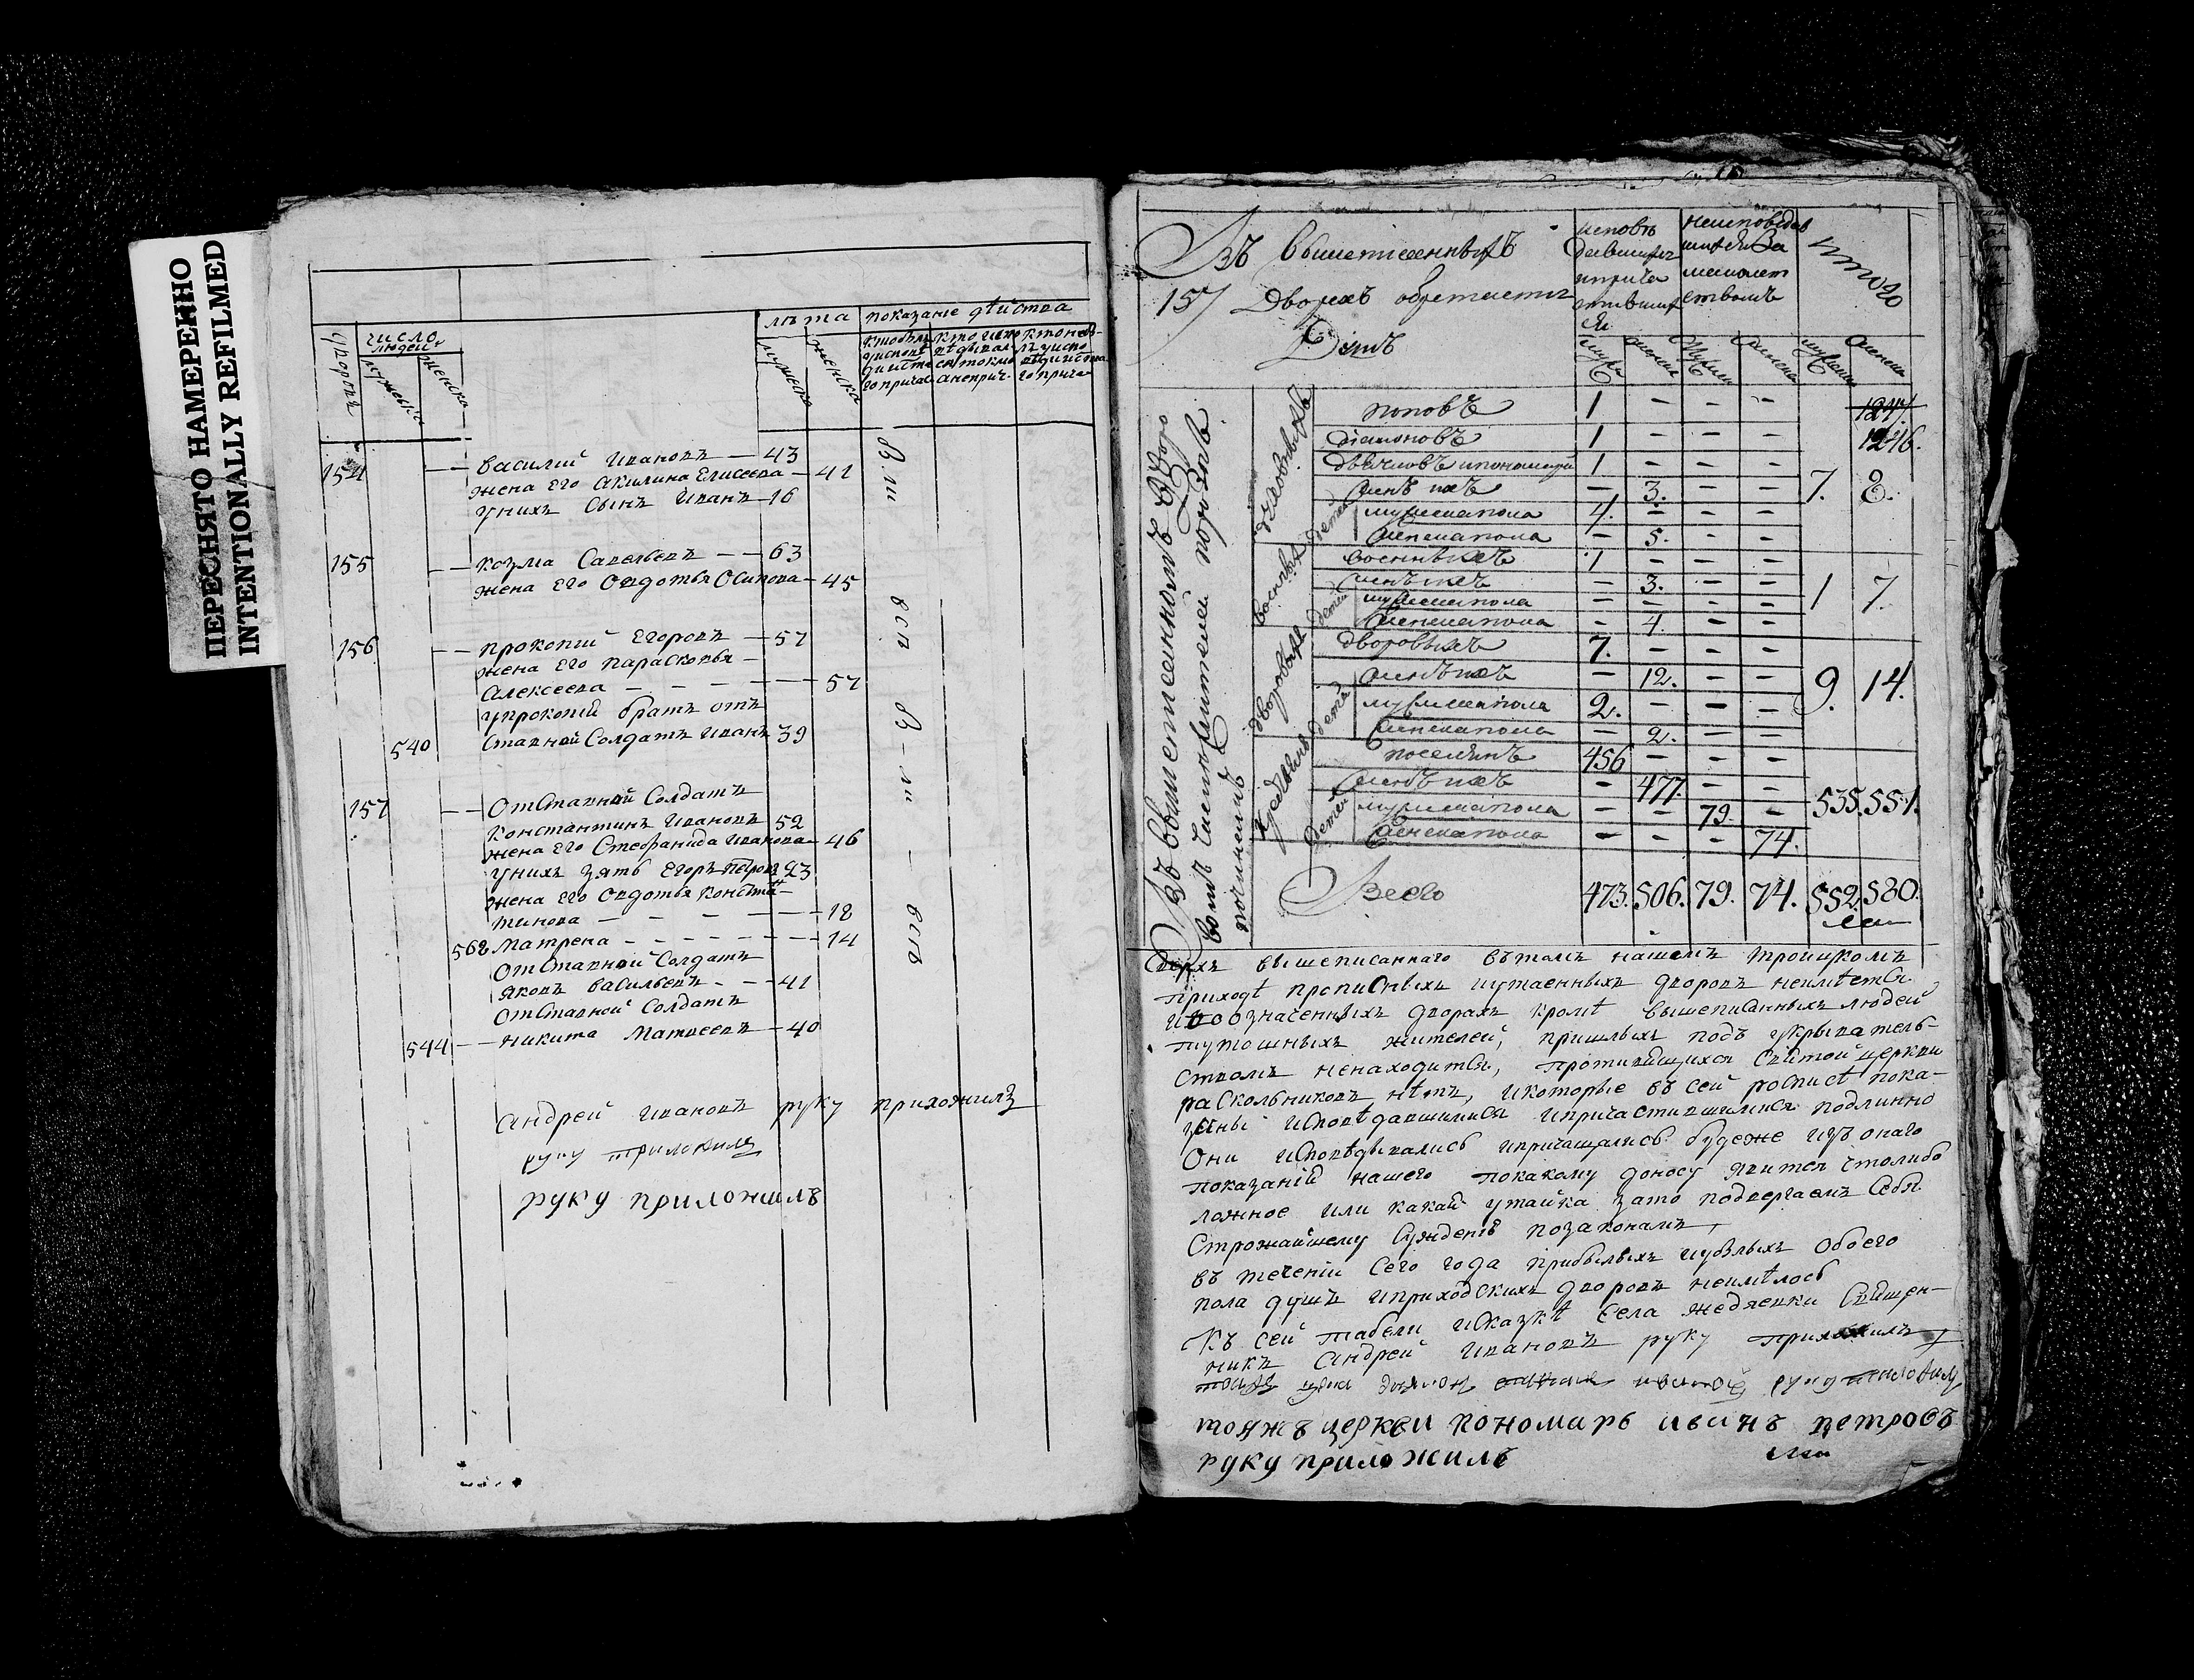 ПЕРЕСНЯТО НАМЕРЕННО
INTENTIONALLY REFILMED
число людей
лѣта
показанiе дѣйства
мужеска
женска
мужеска
женска
154 Василий Ивановъ 43
жена его Акилина Елисеева 41
у нихъ сынъ Иванъ 16
155 Козма Савельевъ 63
жена его Овдотья Осипова 45
156 Прокопий Егоровъ 57
жена его Парасковья
Алексеева 57
у Прокопiй братъ от
540 ставной солдатъ Иванъ 39
157 Отставной солдатъ
Константинъ Ивановъ 52
жена его Стефанида Иванова 46
у нихъ зять Егоръ Петровъ 23
жена его Овдотья Констан
тинова 18
568 Матрена 14
Отставной солдатъ
Яковъ Васильевъ 41
Отставной солдатъ
544 Никита Матвеевъ 40
Андрей Ивановъ руку приложилъ
руку приложилъ
руку приложилъ
Въ вышеписанныхъ
157 дворехъ обретается
Душъ
исповѣ
давшихся
и прича
стивших
ся
неисповѣдав
шихся за
малолет
ствомъ
итого
духовныхъ
поповъ 1 - - -
1247
дiаконовъ 1 - - -
1246.
дьячковъ и пономарей 1 - - -
женъ ихъ - 3. - - 7. 8.
детей
мужеска пола 4. - - -
женска пола - 5. - -
военныхъ
военныхъ 1 - - -
женъ ихъ - 3. - - 1 7.
детей
мужеска пола - - - -
женска пола - 4. - -
дворовыхъ
дворовыхъ 7. - - -
женъ ихъ - 12. - - 9. 14.
детей
мужеска пола 2. - - -
женска пола - 2. - -
поселянъ 456 - - -
женъ ихъ - 477. - - 535. 551.
детей
мужеска пола - - 79. -
женска пола - - - 74.
Всего 473. 506. 79. 74. 552. 580.
Сверхъ вышеписаннаго въ томъ нашемъ Троицкомъ
приходѣ прописныхъ и утаенныхъ дворовъ неимѣется
и во означенныхъ дворахъ кромѣ вышеписанныхъ людей
тутошныхъ жителей, пришлыхъ подъ укрыватель-
ствомъ ненаходится, противящихся святой церкви
раскольниковъ нѣтъ, и которые въ сей росписѣ пока-
заны исповѣдавшимися и причастившимися подлинно
они исповѣдывались и причащались будеже изъ онаго
показанiй нашего по какому доносу явится чтолибо
ложное или какай утайка зато подвергаемъ себя
строжайшему сужденiю по законамъ,
въ теченiи сего года прибылыхъ и убылыхъ обоего
пола душъ и приходскихъ дворовъ неимѣлось
Къ сей табели и сказкѣ села Жедяевки священ-
никъ Андрей Ивановъ руку приложилъ
руку приложилъ
тояжъ церкви пономарь Иванъ Петровъ
руку приложилъ